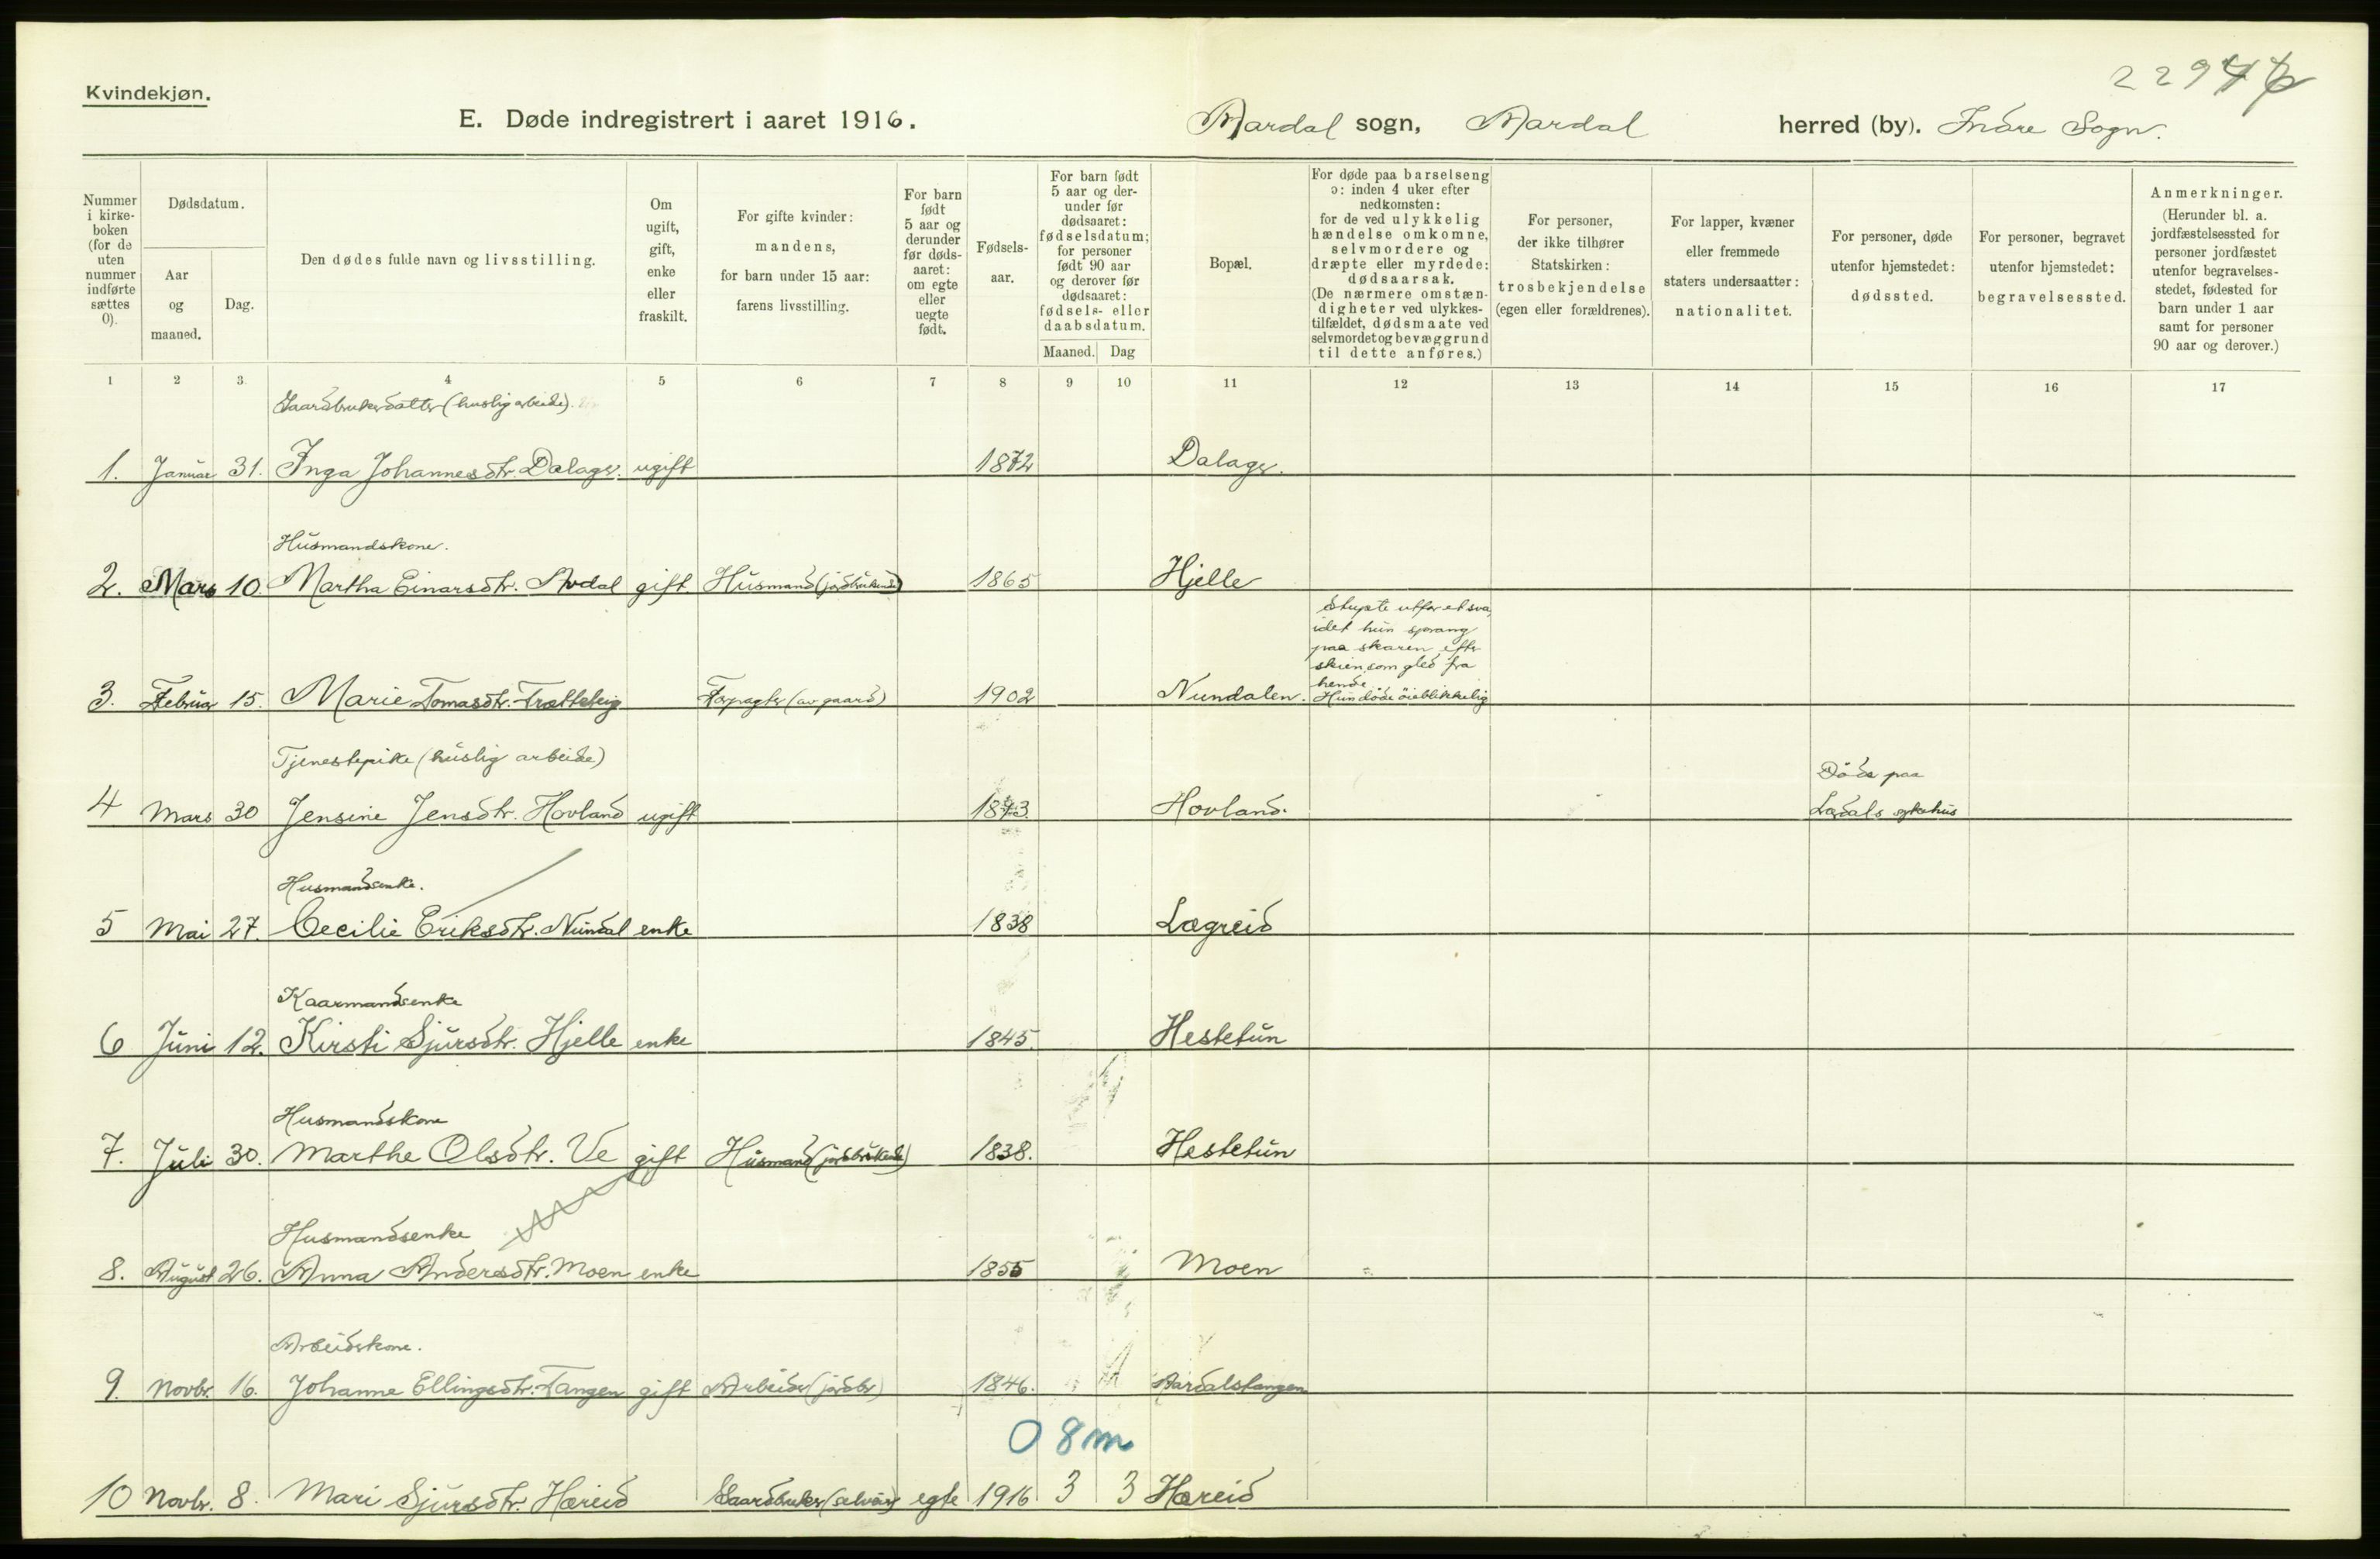 Kvindekjøn.
E. Døde indregistrert i aaret 1916.
Aardal sogn, Aardal herred (by). Indre Sogn.
Nummer i kirke- boken (for de uten nummer indførte sættes 0).
Dødsdatum.
Aar og maaned.
Dag.
Den dødes fulde navn og livsstilling.
Om ugift, gift, enke eller fraskilt.
For gifte kvinder: mandens, for barn under 15 aar: farens livsstilling.
For barn født 5 aar og derunder før døds- aaret: om egte eller uegte født.
Fødsels- aar.
For barn født 5 aar og der- under før dødsaaret: fødselsdatum; for personer født 90 aar og derover før dødsaaret: fødsels- eller daabsdatum.
Maaned. Dag
Bopæl.
For døde paa barselseng ɔ: inden 4 uker efter nedkomsten: for de ved ulykkelig hændelse omkomne, selvmordere og dræpte eller myrdede: dødsaarsak. (De nærmere omstæn- digheter ved ulykkes- tilfældet, dødsmaate ved selvmordet og bevæggrund til dette anføres.)
For personer, der ikke tilhører Statskirken: trosbekjendelse (egen eller forældrenes).
For lapper, kvæner eller fremmede staters undersaatter: nationalitet.
For personer, døde utenfor hjemstedet: dødssted.
For personer, begravet utenfor hjemstedet: begravelsessted.
Anmerkninger. (Herunder bl. a. jordfæstelsessted for personer jordfæstet utenfor begravelses- stedet, fødested for barn under 1 aar samt for personer 90 aar og derover.)
1 2 3. 4 5 6 7 8 9 10 11 12 13 14 15 16 17
Gaardbrukerdatter (huslig arbeide).
1. Januar 31. Inga Johannesdtr. Dalager. ugift 1872 Dalager.
Husmandskone.
2. Mars 10. Martha Einarsdtr. Avdal gift Husmand (jordbrukende) 1865 Hjelle
Stupte utfor et sva,
idet hun sprang
paa skaren efter
skien, som gled fra
hende.
3. Februar 15. Marie Tomasdtr. Trætteteig Forpagter (av gaard) 1902 Nundalen. Hun døde øieblikkelig
Tjenestepike (huslig arbeide) Døde paa
4 Mars 30 Jensine Jensdtr. Hovland ugift 1873 Hovland. Lærdals sykehus
Husmandsenke.
5 Mai 27. Cecilie Eriksdtr. Nundal enke 1838 Lægreid
Kaarmandsenke
6 Juni 12. Kirsti Sjursdtr. Hjelle enke 1845. Hestetun
Husmandskone
7. Juli 30. Marthe Olsdtr. Ve gift Husmand (jordbrukende) 1838. Hestetun
Husmandsenke
8. August 26. Anna Andersdtr. Moen enke 1855 Moen
Arbeiderskone.
9. Novbr. 16. Johanne Ellingsdtr. Tangen gift Arbeider (jordbr) 1846. Aardalstangen
0 8m
10 Novbr. 8. Mari Sjursdtr. Hæreid Gaardbruker (selveier) egte 1916 3 3 Hæreid